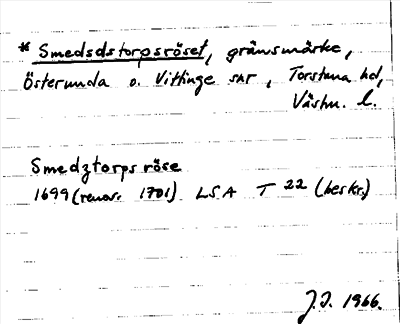 * Smedsdstorpsröset, gränsmärke,
Österunda o. Vittinge snr, Torstuna hd,
Västm. l.
Smedztorps röse
1699 (renov. 1701) LSA T 22 (beskr.)
J.I. 1966.